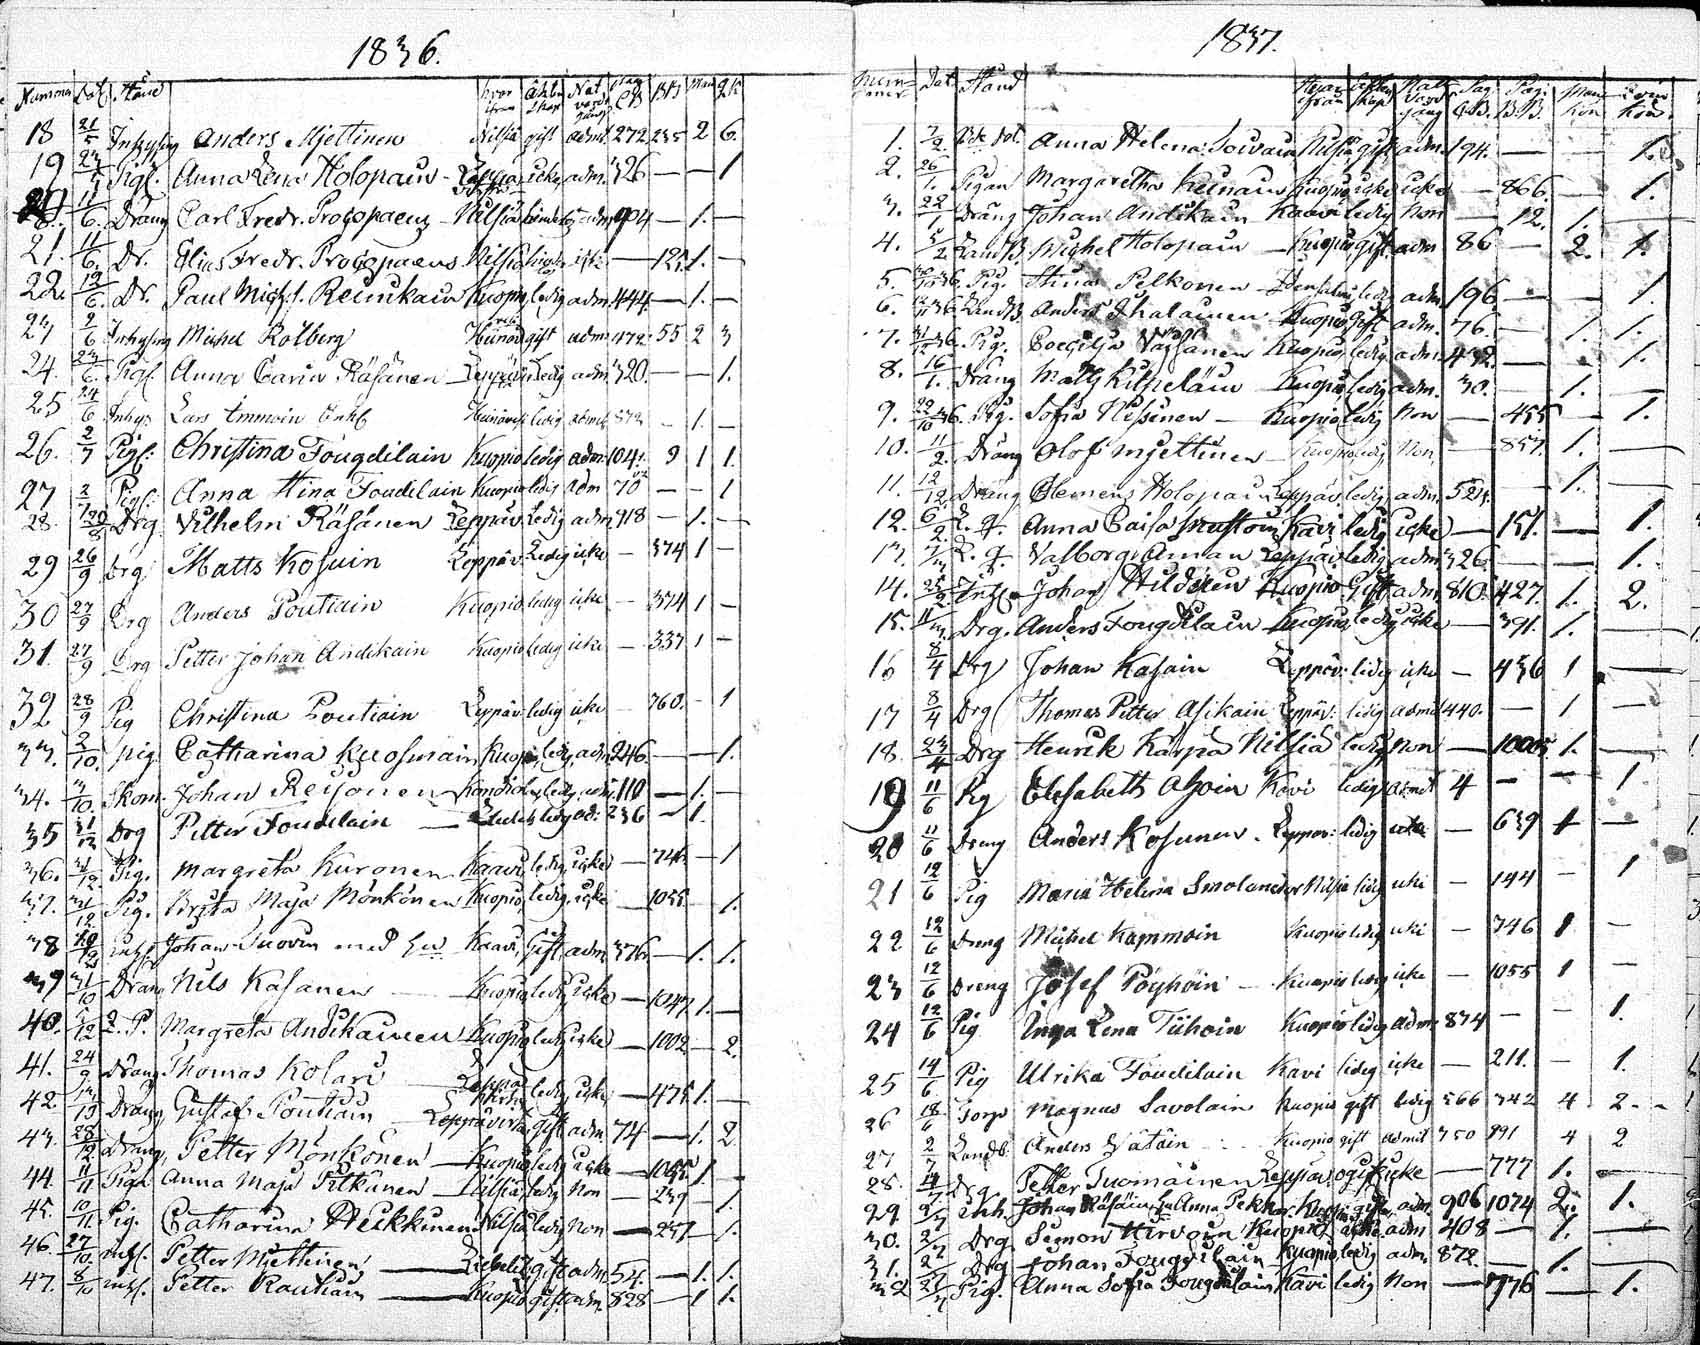 1836.
Nummer Dat. Stånd hvar ifrån Ägten skap Nat vards gång Pag CB BB Man QK
18 21/5 Inhysing Anders Mjettinen Nilsiä gift admt. 272 235 2 6.
19 Pigl. Anna Lena Holopain - icke adm. 326 — — 1
20. 11/6. Dräng Carl Fredr. Procopaeus - Nilsiä adm 904 — 1. —
21. 11/6. Dr. Elias Fredr. Procopaeus Nilsiä — 1. —
22. 12/6. Dr. Paul Mich. Reinikain Kuopio ledig adm. 444. — 1. —
23 2/6 Inhysing Michel Rolberg gift adm. 472. 55 2 3
24. 23/6. Pigl. Anna Carin Räsänen - Leppäv. Ledig adm. 320. — — 1.
25 24/6 Inhys Lars Immoin Enkl ledig admt. 872 — 1. —
26. 2/7 Pigl. Christina Fougdilain Kuopio ledig adm. 104. 9 1 1.
27 2/7 Pigl. Anna Stina Foudilain Kuopio ledig adm 70 — — 1
28. 20/8 Drg Vilhelm Räsänen Leppäv. Ledig adm 918 — 1. —
29 26/9 Drg Matts Kosuin Leppäv. Ledig icke — 374 1 —
30 27/9 Drg Anders Poutiain Kuopio ledig icke — 374 1 —
31. 27/9 Drg Petter Johan Andikain Kuopio ledig icke — 337 1 —
32 28/9 Pig Christina Poutiain Leppäv. ledig icke — 760. — 1
33. 2/10. pig Catharina Kuosmain Kuopio ledig adm 246. — — 1.
34. 3/10. Skom. Johan Reijonen ledig adm. 110 — 1. —
35 31/12 Drg Petter Foudilain — ledig ad: 236 — 1.
36. 31/12. Pig. Margreta Kuronen Kaavi ledig icke — 746 — 1
37. 31/12. Pig. Brita Maja Mönkönen Kuopio ledig icke — 1055 — 1.
38 inhs. Johan Suovin med hu Kaavi Gift adm 376. — 1. 1.
39 31/10 Dräng Nils Kasanen — Kuopio ledig icke — 1047. 1. —
40. 5/12 L. P. Margreta Andikainen Kuopio ledig icke — 1002 — 2.
41. 24/9. Dräng Thomas Kolari Leppä virta ledig icke — 475 1. —
42. Dräng Gustaf Poutiain — Leppävirta gift adm 74 — 1. 2
43. 28/12 Dräng Petter Mönkönen — Kuopio ledig icke — 1055 1. —
44. 11/11 Piga Anna Maja Pitkänen — Nilsiä ledig Non — 239 — 1.
45. 10/11 Pig. Catharina Heikkinen Nilsiä ledig Non — 257 — 1.
46. 27/10. inhs. Petter Mjettinen — gift adm. 54. — 1. 1.
47. 8/10 inhs. Petter Rautiain — Kuopio gift adm. 828 — 1 1.
1837.
Num mer Dat Stånd Hvar ifrån Ägten skap Natt Vard gång Pag. C.B. Pag. B.B. Man kön Qvin kön.
1. 7/2. Anna Helena Soivain Nilsiä gift adm. 194. — — 1.
2. 26/1. Pigan Margaretha Keinain Kuopio icke icke — 866. — 1.
3. 22/1. Dräng Johan Andikain Kaavi ledig Non — 12. 1. —
4. 5/2 Landb. Michel Holopain — Kuopio gift adm 86 — 2. 1.
5. Pig. Stina Pelkonen — Idensalmi ledig adm 196 — — 1.
6. Landb. Anders Ihalainen Kuopio Gift adm. 76. — 1. 1.
7. Pig. Coecilia Kuopio ledig adm. 432. — — 1.
8. 16/1. Dräng Matts Kilpeläin Kuopio ledig adm. 30. — 1. —
9. 22/10 36. Pig. Sofia Hissinen — Kuopio ledig Non — 455 — 1.
10. 11/2. Dräng Olof Mjettinen — Kuopio ledig Non — 857. 1. —
11. 12/12. Dräng Clemens Holopain Leppäv. ledig adm. 524. — 1. —
12. 6/2. L. q. Anna Caisa Mustoin Kavi ledig icke — 151. — 1.
13. 7/3 L. q. Valborg Aman Leppäv. ledig adm 326. — — 1.
14. 25/2 Inhs. Johan Hildden Kuopio Gift adm. 810. 427. 1. 2.
15. 11/3. Drg. Anders Fougdilain Kuopio ledig icke — 391. 1. —
16 8/4 Drg Johan Kasain Leppäv: ledig icke — 436 1 —
17 8/4 Drg Thomas Petter Asikain Leppäv: ledig admit 440. — 1 —
18. 23/4 Drg Henrik Karpa Nilsiä ledig Non — 1000. 1. —
19 11/6 Pig Elisabeth Ahoin Kavi ledig admit 4 — — 1
20 11/6 Dreng Anders Kosunen. Leppav: ledig icke — 639 1 —
21 12/6 Pig Maria Helena Smolander Nilsia ledig icke — 144 — 1
22 12/6 Dreng Michel Kammoin Kuopio ledig icke — 746 1 —
23 12/6 Dreng Josef Pöyhöin — Kuopio ledig icke — 1055 1 —
24 12/6 Pig Inga Lena Tiihoin Kuopio ledig adm: 874 — — 1.
25 14/6 Pig Ulrika Foudilain Kavi ledig icke — 211. — 1.
26 18/6 Torp Magnus Savolain Kuopio gift ledig 566 342 4 2.
27 2/7 Landb. Anders Vätäin Kuopio gift admit 750 891 4 2
28. 4/7 Drg. Petter Tuomainen Leppäv. ogift icke — 777 1. —
29. 2/7 Inh. Johan Räsäin hu Anna Pekkar. Kuopio gifta adm. 906 1074 2. 1.
30. 2/7 Drg. Simon Hirvoin Kuopio adm 408 — 1. —
31. 2/7 Drg Johan Fougdilain Kuopio ledig adm. 872. — 1. —
32 Pig. Anna Sofia Fougdilain Kavi ledig Non — 776 — 1.